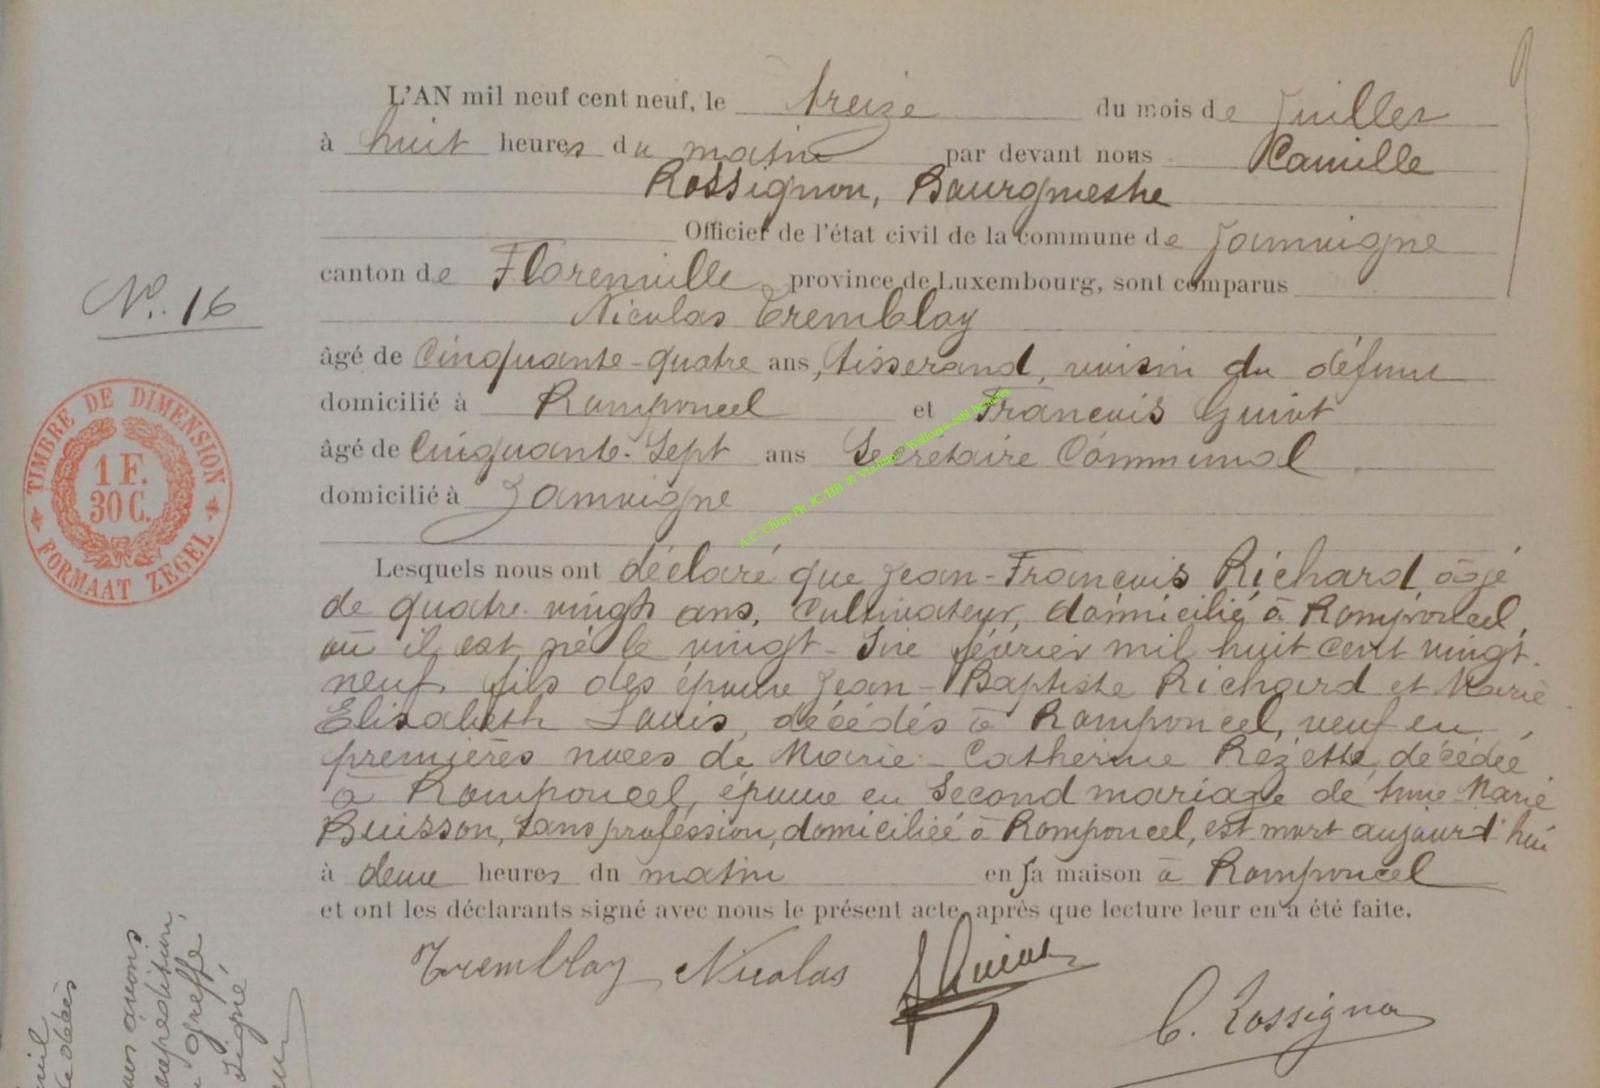 L'AN mil neuf cent neuf, le treize du mois de Juillet
à huit heures du matin par devant nous Camille
Rossignon, Bourgmestre
Officier de l'état civil de la commune de Jamoigne
canton de Florenville province de Luxembourg, sont comparus
Nicolas Tremblay
N°. 16
âgé de Cinquante-quatre ans, tisserand, voisin du défunt
domicilié à Romponcel et François Guiot
âgé de Cinquante-Sept ans Secrétaire Communal
domicilié à Jamoigne
TIMBRE DE DIMENSION
1 F.
30 C.
FORMAAT ZEGEL
Lesquels nous ont déclaré que Jean-François Richard âgé
de quatre-vingts ans, Cultivateur, domicilié à Romponcel,
où il est né le vingt-Six février mil huit cent vingt-
neuf, fils des époux Jean-Baptiste Richard et Marie
Elisabeth Louis, décédés à Romponcel, veuf en
premières noces de Marie-Catherine Rézette, décédée
à Romponcel, époux en Second mariage de Anne Marie
Buisson, Sans profession, domiciliée à Romponcel, est mort aujourd'hui
à deux heures du matin en Sa maison à Romponcel
et ont les déclarants signé avec nous le présent acte, après que lecture leur en a été faite.
Tremblay Nicolas
F Guiot
C. Rossignon
expédition,
greffe
Signé